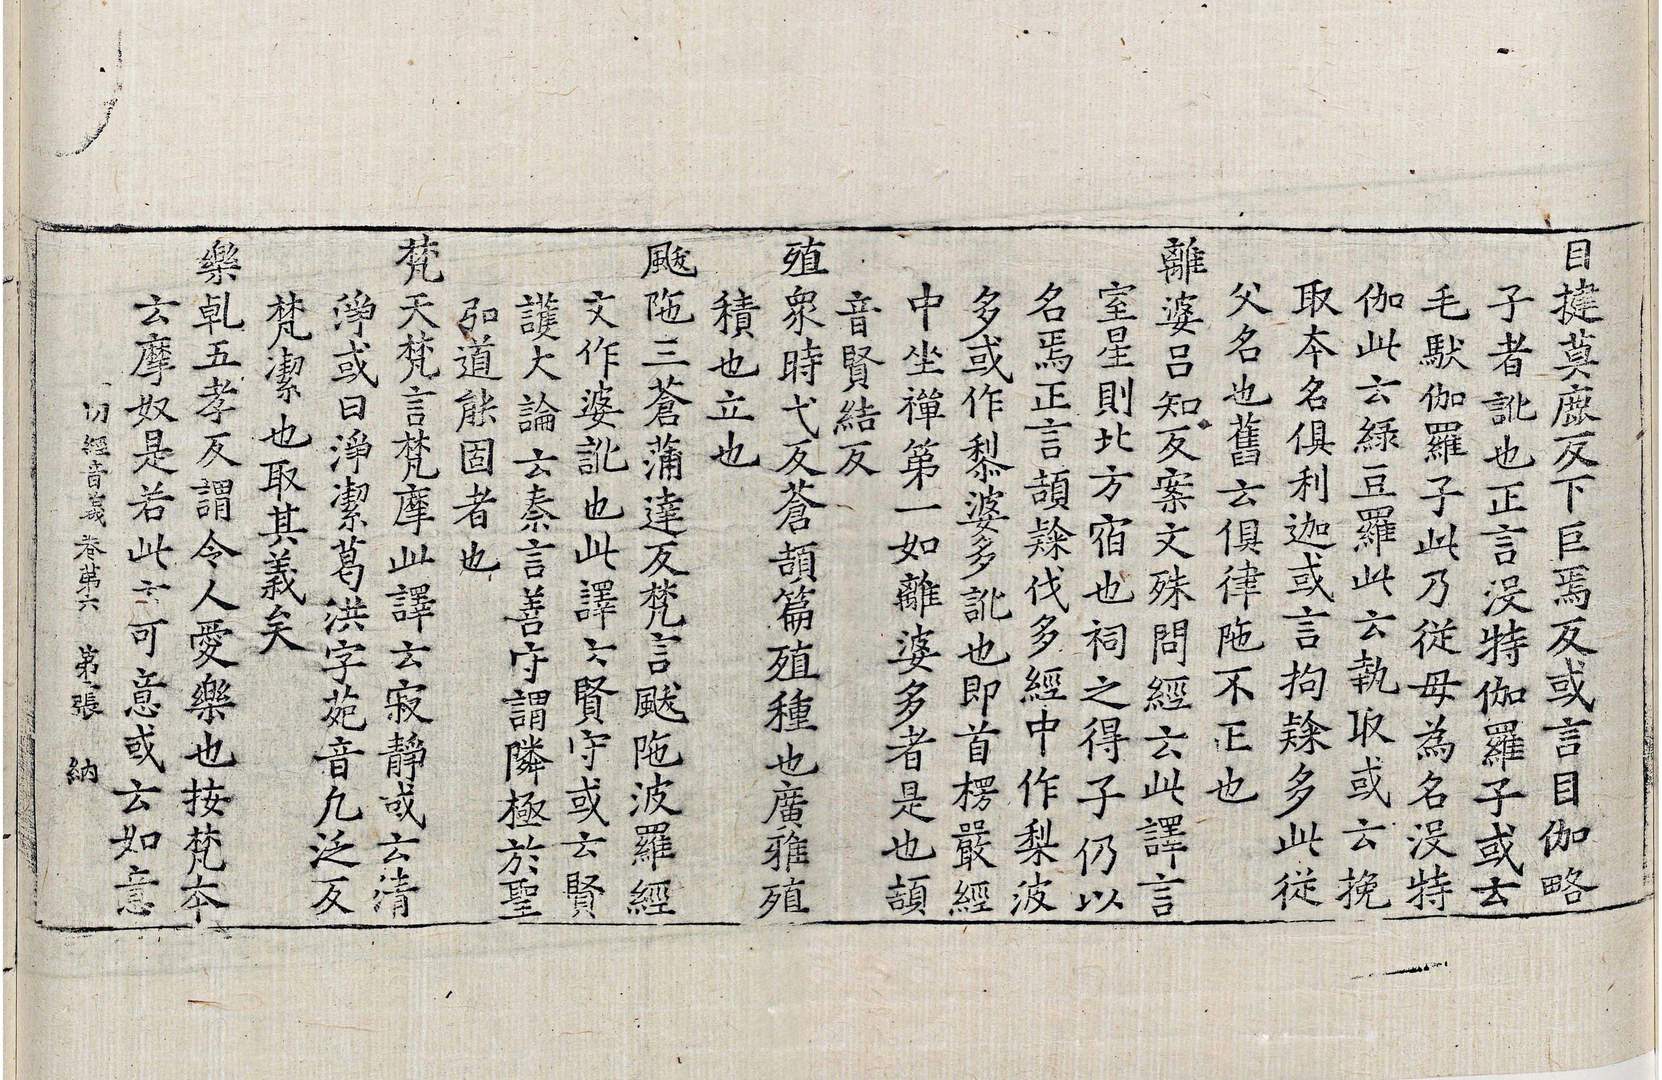 目揵莫鹿反下巨焉反或言目伽略
子者訛也正言没特伽羅子或云
毛馱伽羅子此乃從母為名没特
伽此云綠豆羅此云執取或云挽
取本名俱利迦或言拘隸多此從
父名也舊云俱律陁不正也
離婆吕知反案文殊問經云此譯言
室星則北方宿也祠之得子仍以
名焉正言頡隸伐多經中作梨波
多或作㴝婆多訛也即首楞嚴經
中坐禪第一如離婆多者是也頡
音賢結反
殖衆時弋反蒼頡篇殖種也廣雅殖
積也立也
颰陁三蒼蒲達反梵言颰陁波羅經
文作婆訛也此譯云賢守或云賢
護大論云秦言善守謂隣極於聖
弘道能固者也
梵天梵言梵摩此譯云寂靜或云清
淨或曰淨潔葛洪字苑音凢泛反
梵潔也取其義矣
樂乹五孝反謂令人愛樂也按梵本
云摩奴是若此云可意或云如意
一切經音義卷第六 第張 納